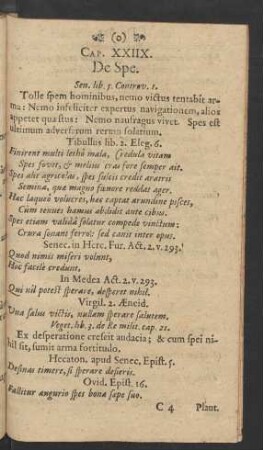 (o)
CAP. XXIIX.
De Spe.
Sen. lib. 5. Controv. 1.
Tolle spem hominibus, nemo victus tentabit ar-
ma: Nemo infeliciter expertus navigationem, alios
appetet quæstus: Nemo naufragus vivet. Spes est
ultimum adversarum rerum solatium.
Tibullus lib. 2. Eleg. 6.
Finirent multi lethô mala, credula vitam
Spes fovet, & melius cras fore semper ait.
Spes alit agricolas, spes sulcis credit aratris
Semina, quæ magno fœnore reddat ager.
Hæc laqueô volucres, hæc captat arundine pisces,
Cum tenues hamus abdidit ante cibus.
Spes etiam validâ solatur compede vinctum:
Crura sonant ferrô: sed canit inter opus.
Senec. in Herc. Fur. Act. 2. v. 293.
Quod nimis miseri volunt,
Hoc facilè credunt.
In Medea Act. 2. v. 293.
Qui nil potest sperare, desperet nihil.
Virgil. 2. Æneid.
Una salus victis, nullam sperare salutem.
Veget. lib. 3. de Re milit. cap. 21.
Ex desperatione crescit audacia; & cum spei ni-
hil sit, sumit arma fortitudo.
Hecaton. apud Senec. Epist. 5.
Desinas timere, si sperare desieris.
Ovid. Epist. 16.
Fallitur augurio spes bona sæpe suo.
C 4 Plaut.